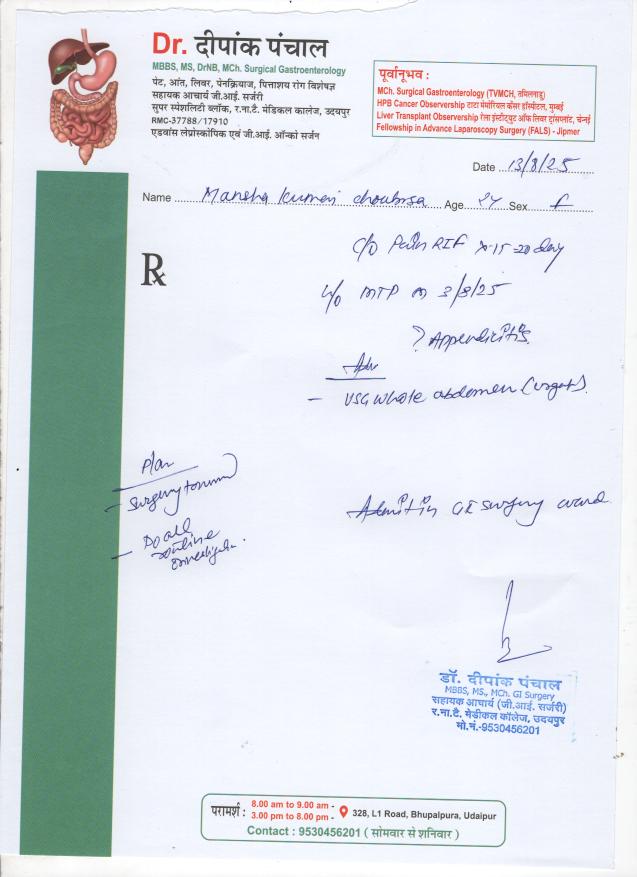 Dr. दीपांक पंचाल
MBBS, MS, DrNB, MCh. Surgical Gastroenterology
पेट, आंत, लिवर, पेनक्रियाज, पित्ताशय रोग विशेषज्ञ
सहायक आचार्य जी.आई. सर्जरी
सुपर स्पेशलिटी ब्लॉक, र.ना.टै. मेडिकल कालेज, उदयपुर
RMC-37788/17910
एडवांस लेप्रोस्कोपिक एवं जी.आई. ऑन्को सर्जन
पूर्वानूभव :
MCh. Surgical Gastroenterology (TVMCH, तमिलनाडू)
HPB Cancer Observership टाटा मेमोरियल कैंसर हॉस्पीटल, मुम्बई
Liver Transplant Observership रेला इंस्टीट्यूट ऑफ लिवर ट्रांसप्लांट, चेन्नई
Fellowship in Advance Laparoscopy Surgery (FALS) - Jipmer
Date 13/8/25
Name Kumari Age Sex F
Rx
C/O Pain RIF x 15-20 day
H/O MTP on 3/8/25
? Appendicitis
Adv
- USG whole abdomen (urgent).
Plan
- Surgery
- Do all
routine
investigation.
Admit in GI surgery ward
डॉ. दीपांक पंचाल
MBBS, MS., MCh. GI Surgery
सहायक आचार्य (जी.आई. सर्जरी)
र.ना.टै. मेडीकल कॉलेज, उदयपुर
मो.नं.-9530456201
परामर्श : 8.00 am to 9.00 am -
3.00 pm to 8.00 pm - 328, L1 Road, Bhupalpura, Udaipur
Contact : 9530456201 ( सोमवार से शनिवार )